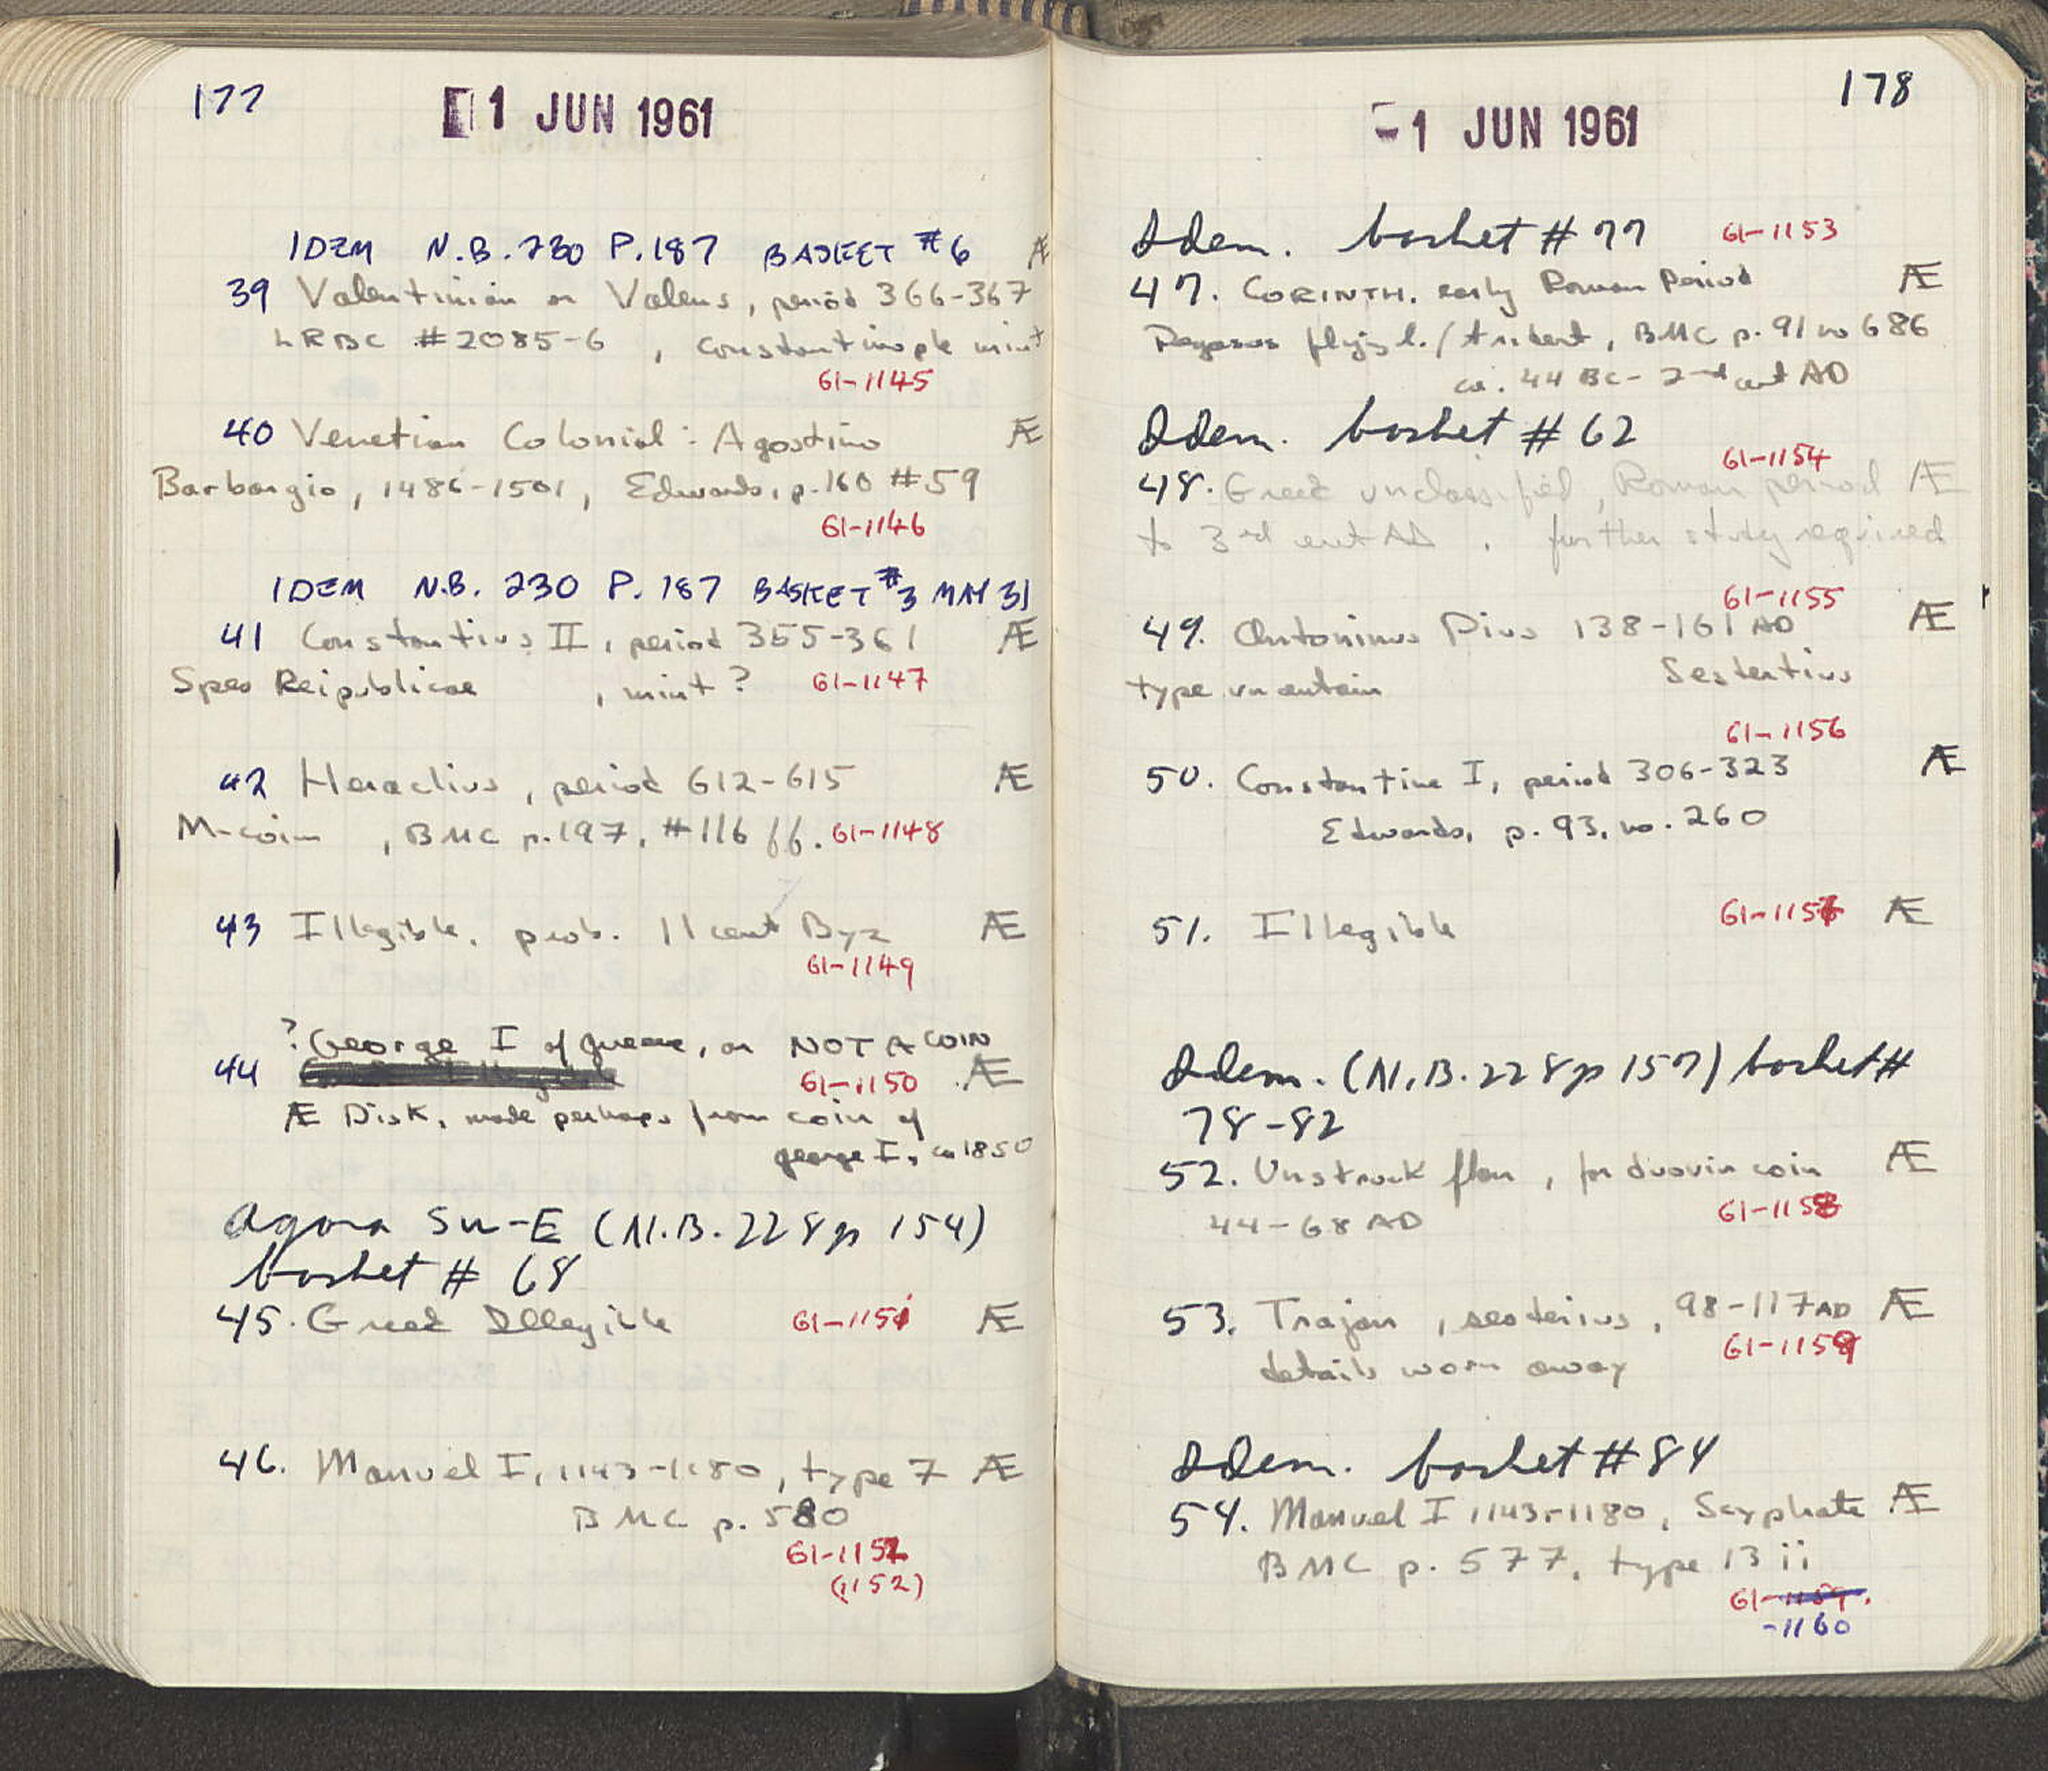 177
1 JUN 1961
IDEM N.B. 230 P. 187 BASKET #6 Æ
39 Valentinian or Valens, period 366-367
LRBC #2085-6 , Constantinople mint
61-1145
40 Venetian Colonial: Agostino Æ
Barbargio, 1486-1501, Edwards, p. 160 #59
61-1146
IDEM N.B. 230 P. 187 BASKET #3 MAY 31
41 Constantius II, period 355-361 Æ
Spes Reipublicae , mint? 61-1147
42 Heraclius, period 612-615 Æ
M-coin , BMC p. 197, #116 ff. 61-1148
43 Illegible, prob. 11 cent Byz Æ
61-1149
? George I of Greece, or NOT A COIN
44 61-1150 Æ
Æ Disk, made perhaps from coin of
George I, ca 1850
Agora SW-E (N.B. 228 p 154)
basket # 68
45. Greek Illegible 61-1151 Æ
46. Manuel I, 1143-1180, type 7 Æ
BMC p. 580
61-1152
(1152)
178
-1 JUN 1961
Idem. basket # 77 61-1153
47. CORINTH. early Roman Period Æ
Pegasus flying l. / trident, BMC p. 91 no 686
ca. 44 BC - 2nd cent AD
Idem. basket # 62
61-1154
48. Greek unclassified, Roman period Æ
to 3rd cent AD . further study required
61-1155
49. Antoninus Pius 138-161 AD Æ
Sestertius
type uncertain
61-1156
50. Constantine I, period 306-323 Æ
Edwards, p. 93, no. 260
51. Illegible 61-1157 Æ
Idem. (N.B. 228 p 157) basket #
78-82
52. Unstruck flan, for duovir coin Æ
44-68 AD 61-1158
53. Trajan, sesterius, 98-117 AD Æ
61-1159
details worn away
Idem. basket # 84
54. Manuel I 1143-1180, Scyphate Æ
BMC p. 577, type 13 ii
61-1159.
-1160